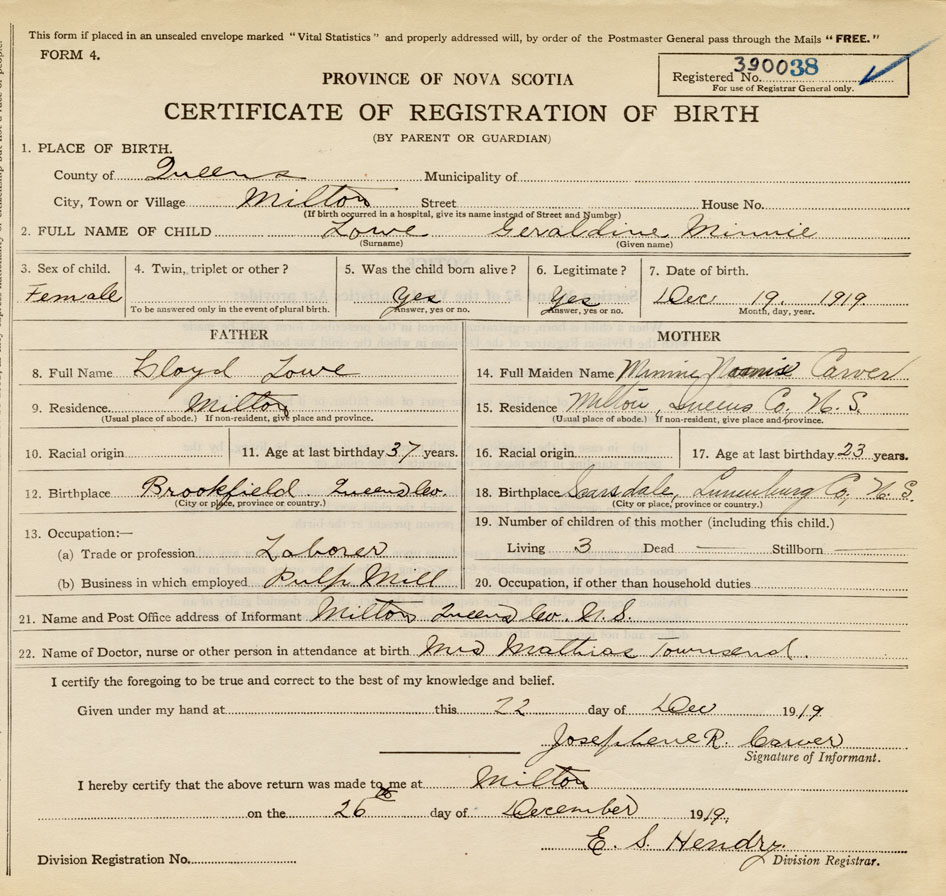 This form if placed in an unsealed envelope marked "Vital Statistics" and properly addressed will, by order of the Postmaster General pass through the Mails "FREE."
FORM 4.
Registered No. 390038
For use of Registrar General only.
PROVINCE OF NOVA SCOTIA
CERTIFICATE OF REGISTRATION OF BIRTH
(BY PARENT OR GUARDIAN)
1. PLACE OF BIRTH.
County of Queens Municipality of
City, Town or Village Milton Street House No.
(If birth occurred in a hospital, give its name instead of Street and Number)
2. FULL NAME OF CHILD Lowe Geraldine Minnie
(Surname) (Given name)
3. Sex of child. 4. Twin, triplet or other? 5. Was the child born alive? 6. Legitimate? 7. Date of birth.
Female Yes Yes Dec 19. 1919
To be answered only in the event of plural birth. Answer, yes or no. Answer, yes or no. Month, day, year.
FATHER
8. Full Name Lloyd Lowe
9. Residence Milton
(Usual place of abode.) If non-resident, give place and province.
10. Racial origin 11. Age at last birthday 37 years.
12. Birthplace Brookfield Queens Co.
(City or place, province or country.)
13. Occupation:—
(a) Trade or profession Laborer
(b) Business in which employed Pulp Mill
MOTHER
14. Full Maiden Name Minnie Carver
15. Residence Milton, Queens Co, N. S.
(Usual place of abode.) If non-resident, give place and province.
16. Racial origin 17. Age at last birthday 23 years.
18. Birthplace Scarsdale, Lunenburg Co, N. S.
(City or place, province or country.)
19. Number of children of this mother (including this child.)
Living 3 Dead — Stillborn —
20. Occupation, if other than household duties
21. Name and Post Office address of Informant Milton Queens Co. N.S.
22. Name of Doctor, nurse or other person in attendance at birth Mrs Mathias Townsend.
I certify the foregoing to be true and correct to the best of my knowledge and belief.
Given under my hand at this 22 day of Dec 1919
Josephene R. Carver
Signature of Informant.
I hereby certify that the above return was made to me at Milton
on the 26th day of December 1919.
E. S. Hendry.
Division Registration No. Division Registrar.